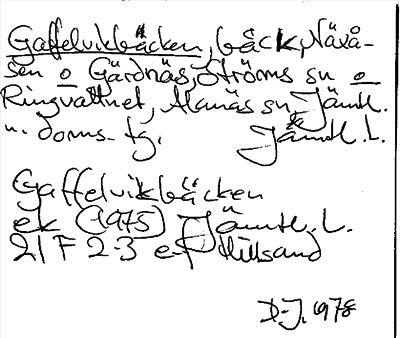 Gaffelvikbäcken, bäck, Nävå-
sen o Gärdnäs, Ströms sn o
Ringvattnet, Alanäs sn, Jämtl.
n. doms. fg. Jämtl. L.
Gaffelvikbäcken
ek (1975) Jämtl. L.
21 F 2-3 e-f Hillsand
D-J. 1978